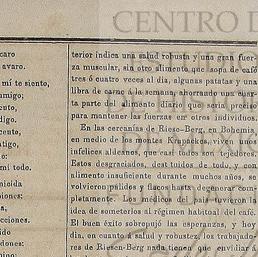 CENTRO D
caro
avaro.
mí te siento,
amigo;
ento,
ntigo,
do.
cente,
atigo,
nto;
.
micida
dientes
o,
cciones.
o.
ento;
no,
terior indica una salud robusta y una gran fuer-
za muscular, sin otro alimento que sopa de café
tres ó cuatro veces al día, algunas patatas y una
libra de carne á la semana ahorrando una cuar-
ta parte del alimento diario que sería preciso
para mantener las fuerzas en otros individuos.
En las cercanías de Rieso-Berg, en Bohemia,
en medio de los montes Krapackos, viven unos
infelices aldeanos, que casi todos son tejedores.
Estos desgraciados, destituidos de todo, y con
alimento insuficiente durante muchos años, se
volvieron pálidos y flacos hasta degenerar com-
pletamente. Los médicos del país tuvieron la
idea de someterlos al régimen habitual del café.
El buen éxito sobrepujó las esperanzas, y hoy
día, en cuanto á salud y robustez, los trabajado-
res de Riesen-Berg nada tienen que envidiar á